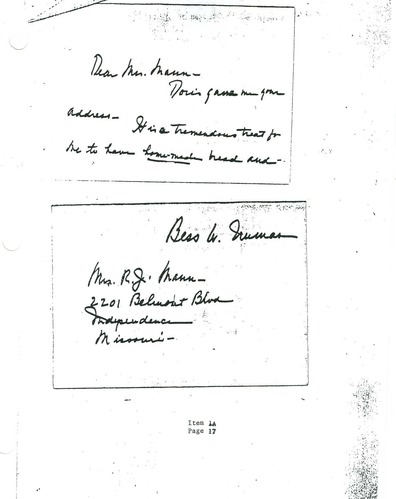 Dear Mrs. Mann—
Doris gave me your
address— It is a tremendous treat for
me to have home-made bread and—
Bess W. Truman
Mrs. R. Jr. Mann—
2201 Belmont Blvd
Independence
Missouri—
Item 1A
Page 17